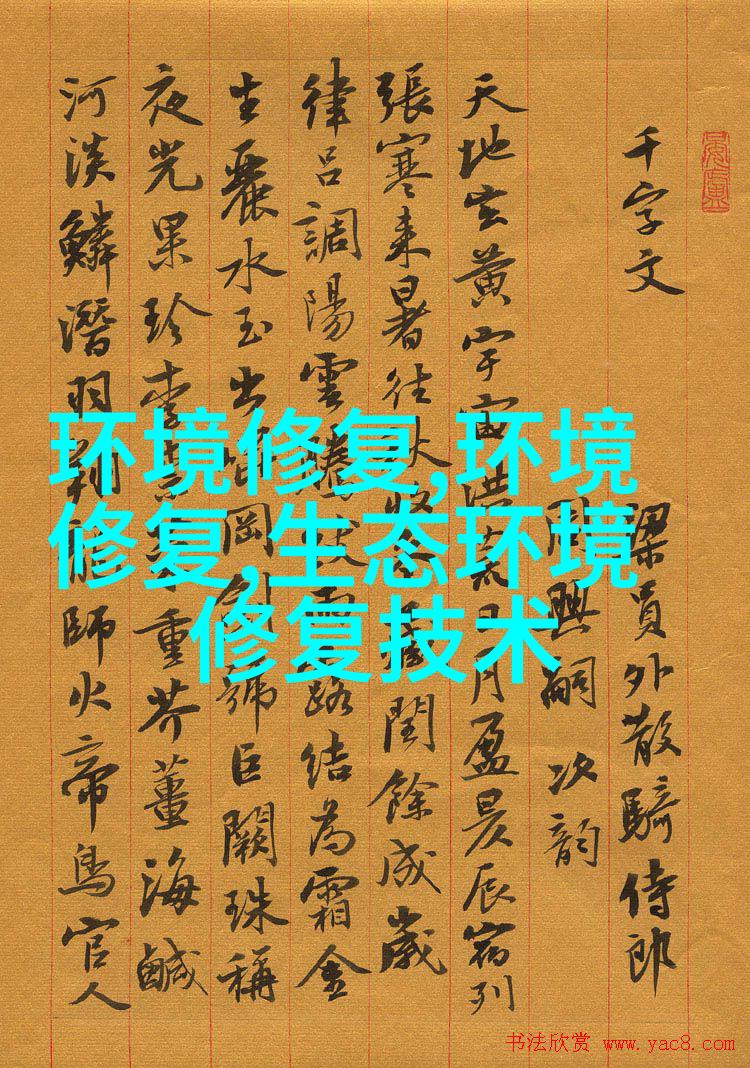 千字文
梁員外散騎侍郎
周興嗣 次韵
天地玄黃宇宙洪荒日月盈昃辰宿列
張寒來暑往秋收冬藏閏餘成歲
律呂調陽雲騰致雨露結為霜金
生麗水玉出崑岡劍號巨闕珠稱
夜光果珍李柰菜重芥薑海鹹
河淡鱗潛羽翔龍師火帝鳥官人
环境修复,环境
修复,生态环境
修复技术
书法欣赏 www.yac8.com